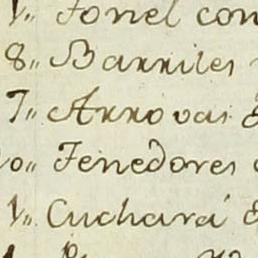 1,, Tonel con
8,, Barriles
7,, Arrovas
Tenedores
1,, Cuchara